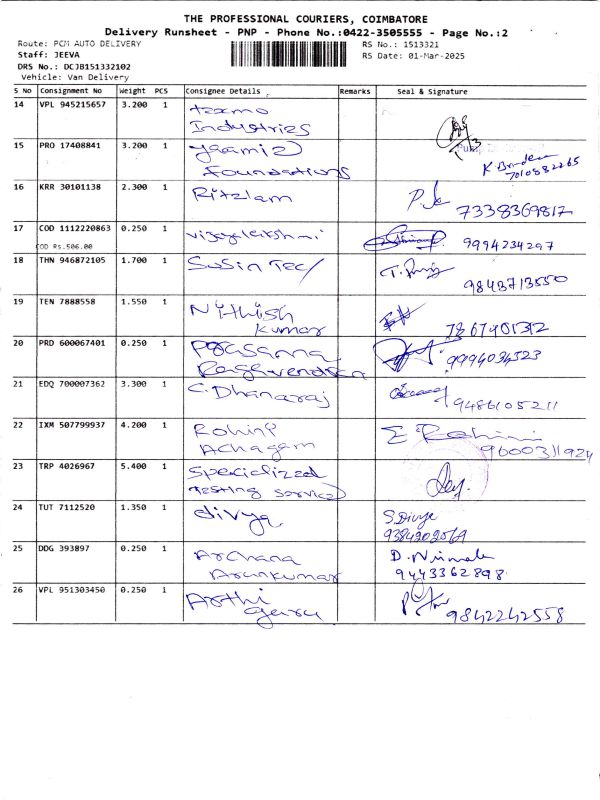 THE PROFESSIONAL COURIERS, COIMBATORE
Delivery Runsheet - PNP - Phone No.:0422-3505555 - Page No.:2
Route: PCM AUTO DELIVERY RS No.: 1513321
Staff: JEEVA RS Date: 01-Mar-2025
DRS No.: DCJB151332102
Vehicle: Van Delivery
S No Consignment No Weight PCS Consignee Details Remarks Seal & Signature
14 VPL 945215657 3.200 1 texmo
Industries
15 PRO 17408841 3.200 1
Foundations 7010882265
16 KRR 30101138 2.300 1 Ritzlam
7338369817
17 COD 1112220863 0.250 1 vijayalakshmi 9994234297
COD Rs.506.00
18 THN 946872105 1.700 1 SUSin Tec
9843713550
19 TEN 7888558 1.550 1 Nithish
Kumar 7867401312
20 PRD 600067401 0.250 1 Prasanna
Raghvendran 9994034323
21 EDQ 700007362 3.300 1 C. Dhanaraj
9486105211
22 IXM 507799937 4.200 1 Rohini E Rohini
Achagam 9600311924
23 TRP 4026967 5.400 1 Specialized
testing service
24 TUT 7112520 1.350 1 divya S. Divya
9384202569
25 DDG 393897 0.250 1 Archana D. Nirmala
Arunkumar 9443362898
26 VPL 951303450 0.250 1 Arthi
9842242558